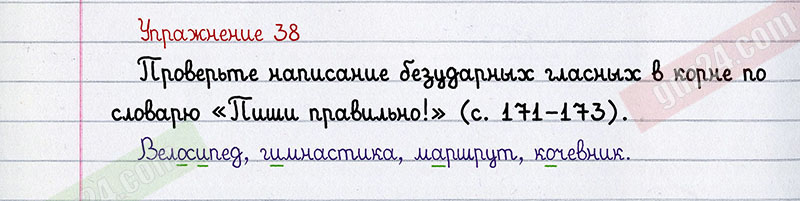 Упражнение 38
Проверьте написание безударных гласных в корне по
словарю «Пиши правильно!» (с. 171-173).
Велосипед, гимнастика, маршрут, кочевник.
gdz4.com
24.com